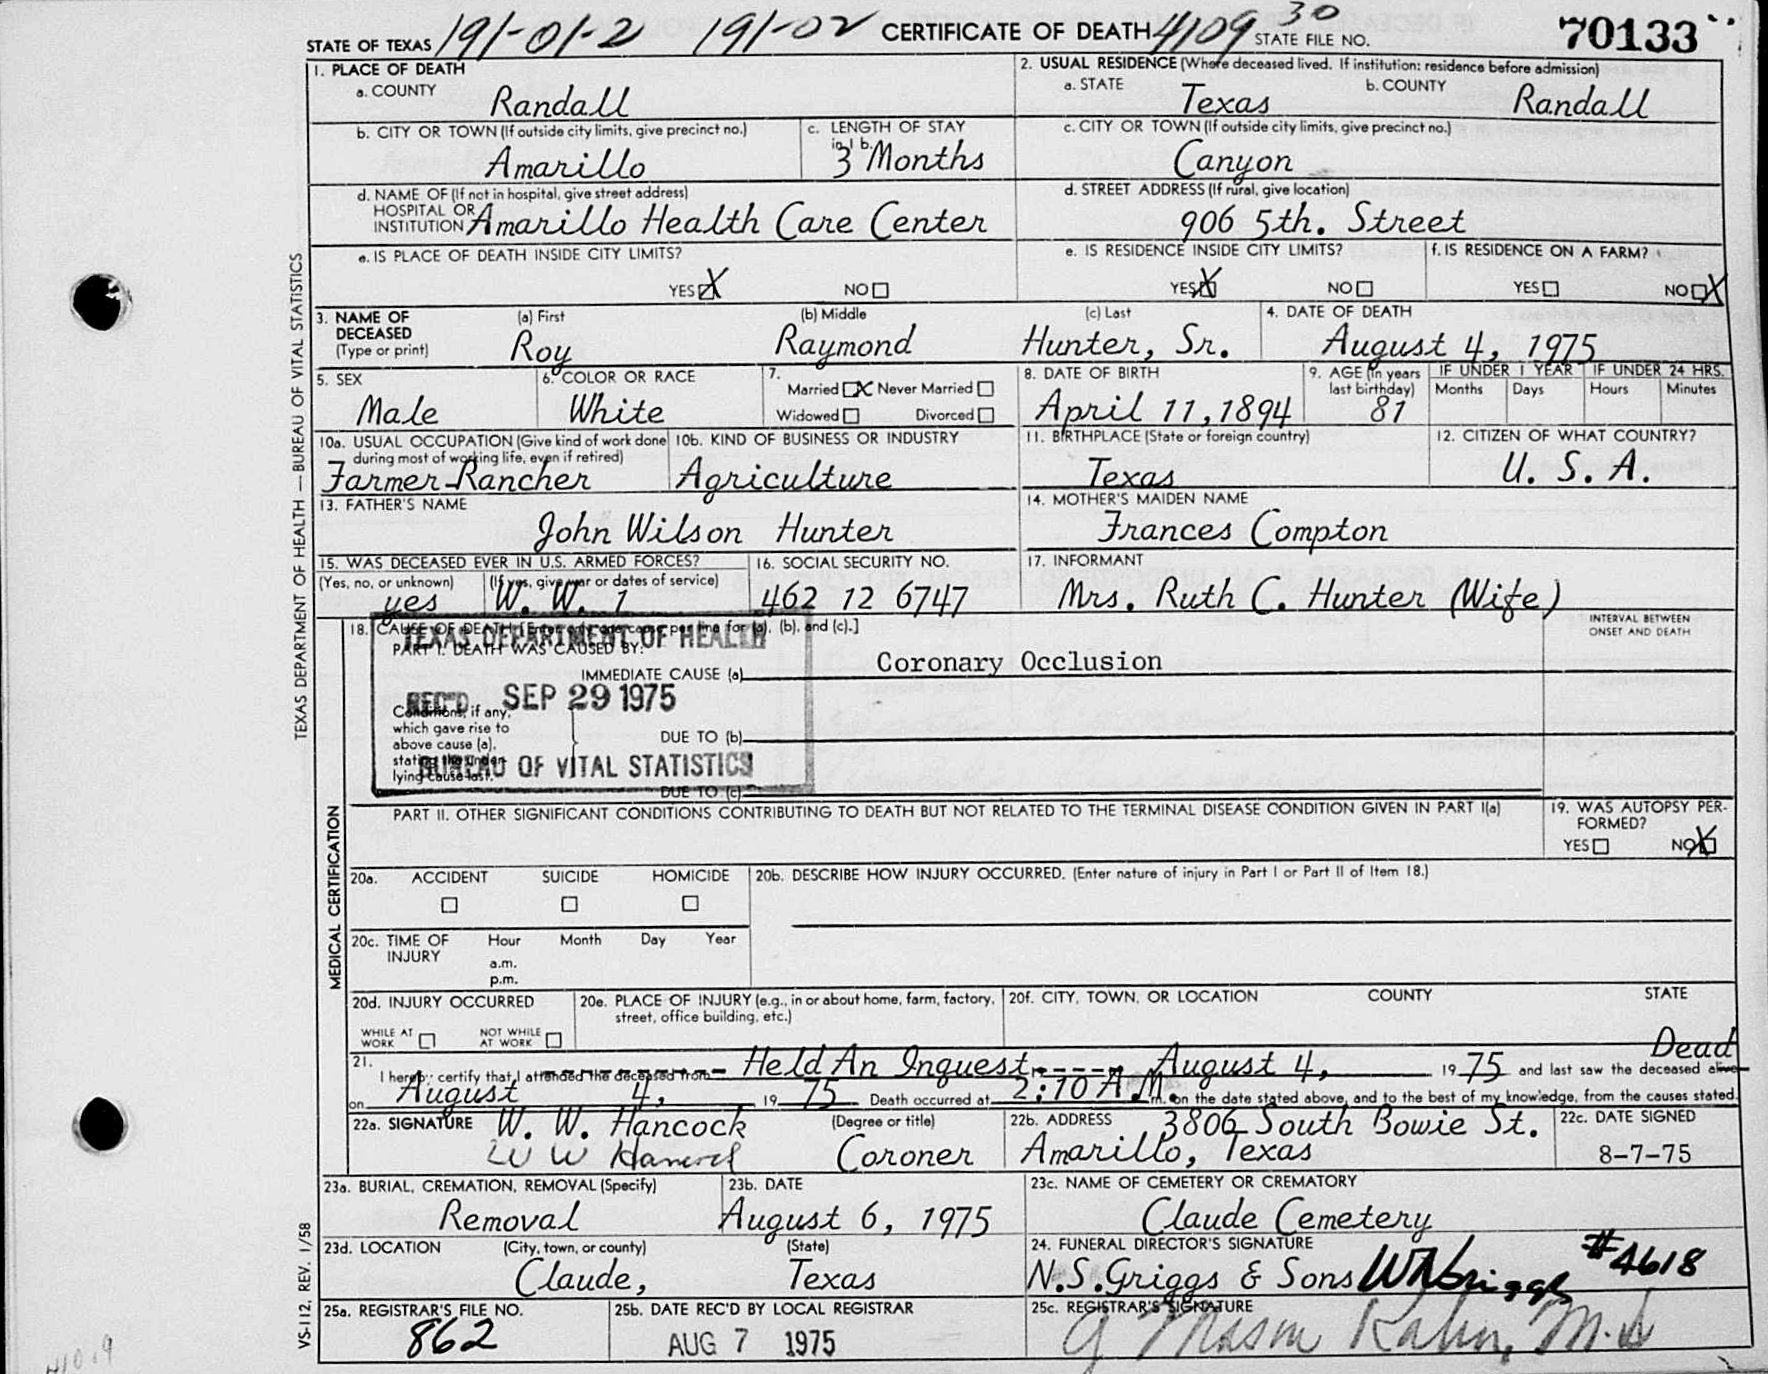 STATE OF TEXAS 191-01-2 191-02 CERTIFICATE OF DEATH 4109 30 STATE FILE NO. 70133
1. PLACE OF DEATH
a. COUNTY
Randall
2. USUAL RESIDENCE (Where deceased lived. If institution: residence before admission)
a. STATE Texas b. COUNTY Randall
b. CITY OR TOWN (If outside city limits, give precinct no.)
Amarillo
c. LENGTH OF STAY
in 1 b.
3 Months
c. CITY OR TOWN (If outside city limits, give precinct no.)
Canyon
d. NAME OF (If not in hospital, give street address)
HOSPITAL OR
INSTITUTION Amarillo Health Care Center
d. STREET ADDRESS (If rural, give location)
906 5th. Street
e. IS PLACE OF DEATH INSIDE CITY LIMITS?
YES X NO
e. IS RESIDENCE INSIDE CITY LIMITS?
YES X NO
f. IS RESIDENCE ON A FARM?
YES NO X
3. NAME OF
DECEASED
(Type or print)
(a) First
Roy
(b) Middle
Raymond
(c) Last
Hunter, Sr.
4. DATE OF DEATH
August 4, 1975
5. SEX
Male
6. COLOR OR RACE
White
7.
Married X Never Married
Widowed Divorced
8. DATE OF BIRTH
April 11, 1894
9. AGE (In years
last birthday)
81
IF UNDER 1 YEAR
Months Days
IF UNDER 24 HRS.
Hours Minutes
10a. USUAL OCCUPATION (Give kind of work done
during most of working life, even if retired)
Farmer-Rancher
10b. KIND OF BUSINESS OR INDUSTRY
Agriculture
11. BIRTHPLACE (State or foreign country)
Texas
12. CITIZEN OF WHAT COUNTRY?
U. S. A.
13. FATHER'S NAME
John Wilson Hunter
14. MOTHER'S MAIDEN NAME
Frances Compton
15. WAS DECEASED EVER IN U.S. ARMED FORCES?
(Yes, no, or unknown) (If yes, give war or dates of service)
yes W. W. 1
16. SOCIAL SECURITY NO.
462 12 6747
17. INFORMANT
Mrs. Ruth C. Hunter (Wife)
18. CAUSE OF DEATH [Enter only one cause per line for (a), (b), and (c).]
PART I. DEATH WAS CAUSED BY:
IMMEDIATE CAUSE (a) Coronary Occlusion
INTERVAL BETWEEN
ONSET AND DEATH
TEXAS DEPARTMENT OF HEALTH
REC'D SEP 29 1975
BUREAU OF VITAL STATISTICS
Conditions, if any,
which gave rise to
above cause (a),
stating the under-
lying cause last.
DUE TO (b)
DUE TO (c)
PART II. OTHER SIGNIFICANT CONDITIONS CONTRIBUTING TO DEATH BUT NOT RELATED TO THE TERMINAL DISEASE CONDITION GIVEN IN PART I(a)
19. WAS AUTOPSY PER-
FORMED?
YES NO X
20a. ACCIDENT SUICIDE HOMICIDE
20b. DESCRIBE HOW INJURY OCCURRED. (Enter nature of injury in Part I or Part II of Item 18.)
20c. TIME OF
INJURY
Hour Month Day Year
a.m.
p.m.
20d. INJURY OCCURRED
WHILE AT
WORK
NOT WHILE
AT WORK
20e. PLACE OF INJURY (e.g., in or about home, farm, factory,
street, office building, etc.)
20f. CITY, TOWN, OR LOCATION COUNTY STATE
21.
Dead
I hereby certify that I attended the deceased from Held An Inquest August 4, 1975 and last saw the deceased alive
on August 4, 1975 Death occurred at 2:10 A M m. on the date stated above, and to the best of my knowledge, from the causes stated.
22a. SIGNATURE W. W. Hancock (Degree or title)
W W Hancock Coroner
22b. ADDRESS 3806 South Bowie St.
Amarillo, Texas
22c. DATE SIGNED
8-7-75
23a. BURIAL, CREMATION, REMOVAL (Specify)
Removal
23b. DATE
August 6, 1975
23c. NAME OF CEMETERY OR CREMATORY
Claude Cemetery
23d. LOCATION (City, town, or county) (State)
Claude, Texas
24. FUNERAL DIRECTOR'S SIGNATURE
N.S. Griggs & Sons WN Griggs #4618
25a. REGISTRAR'S FILE NO.
862
25b. DATE REC'D BY LOCAL REGISTRAR
AUG 7 1975
25c. REGISTRAR'S SIGNATURE
J Mason Kahn, M.D
TEXAS DEPARTMENT OF HEALTH — BUREAU OF VITAL STATISTICS
MEDICAL CERTIFICATION
VS-112, REV. 1/58